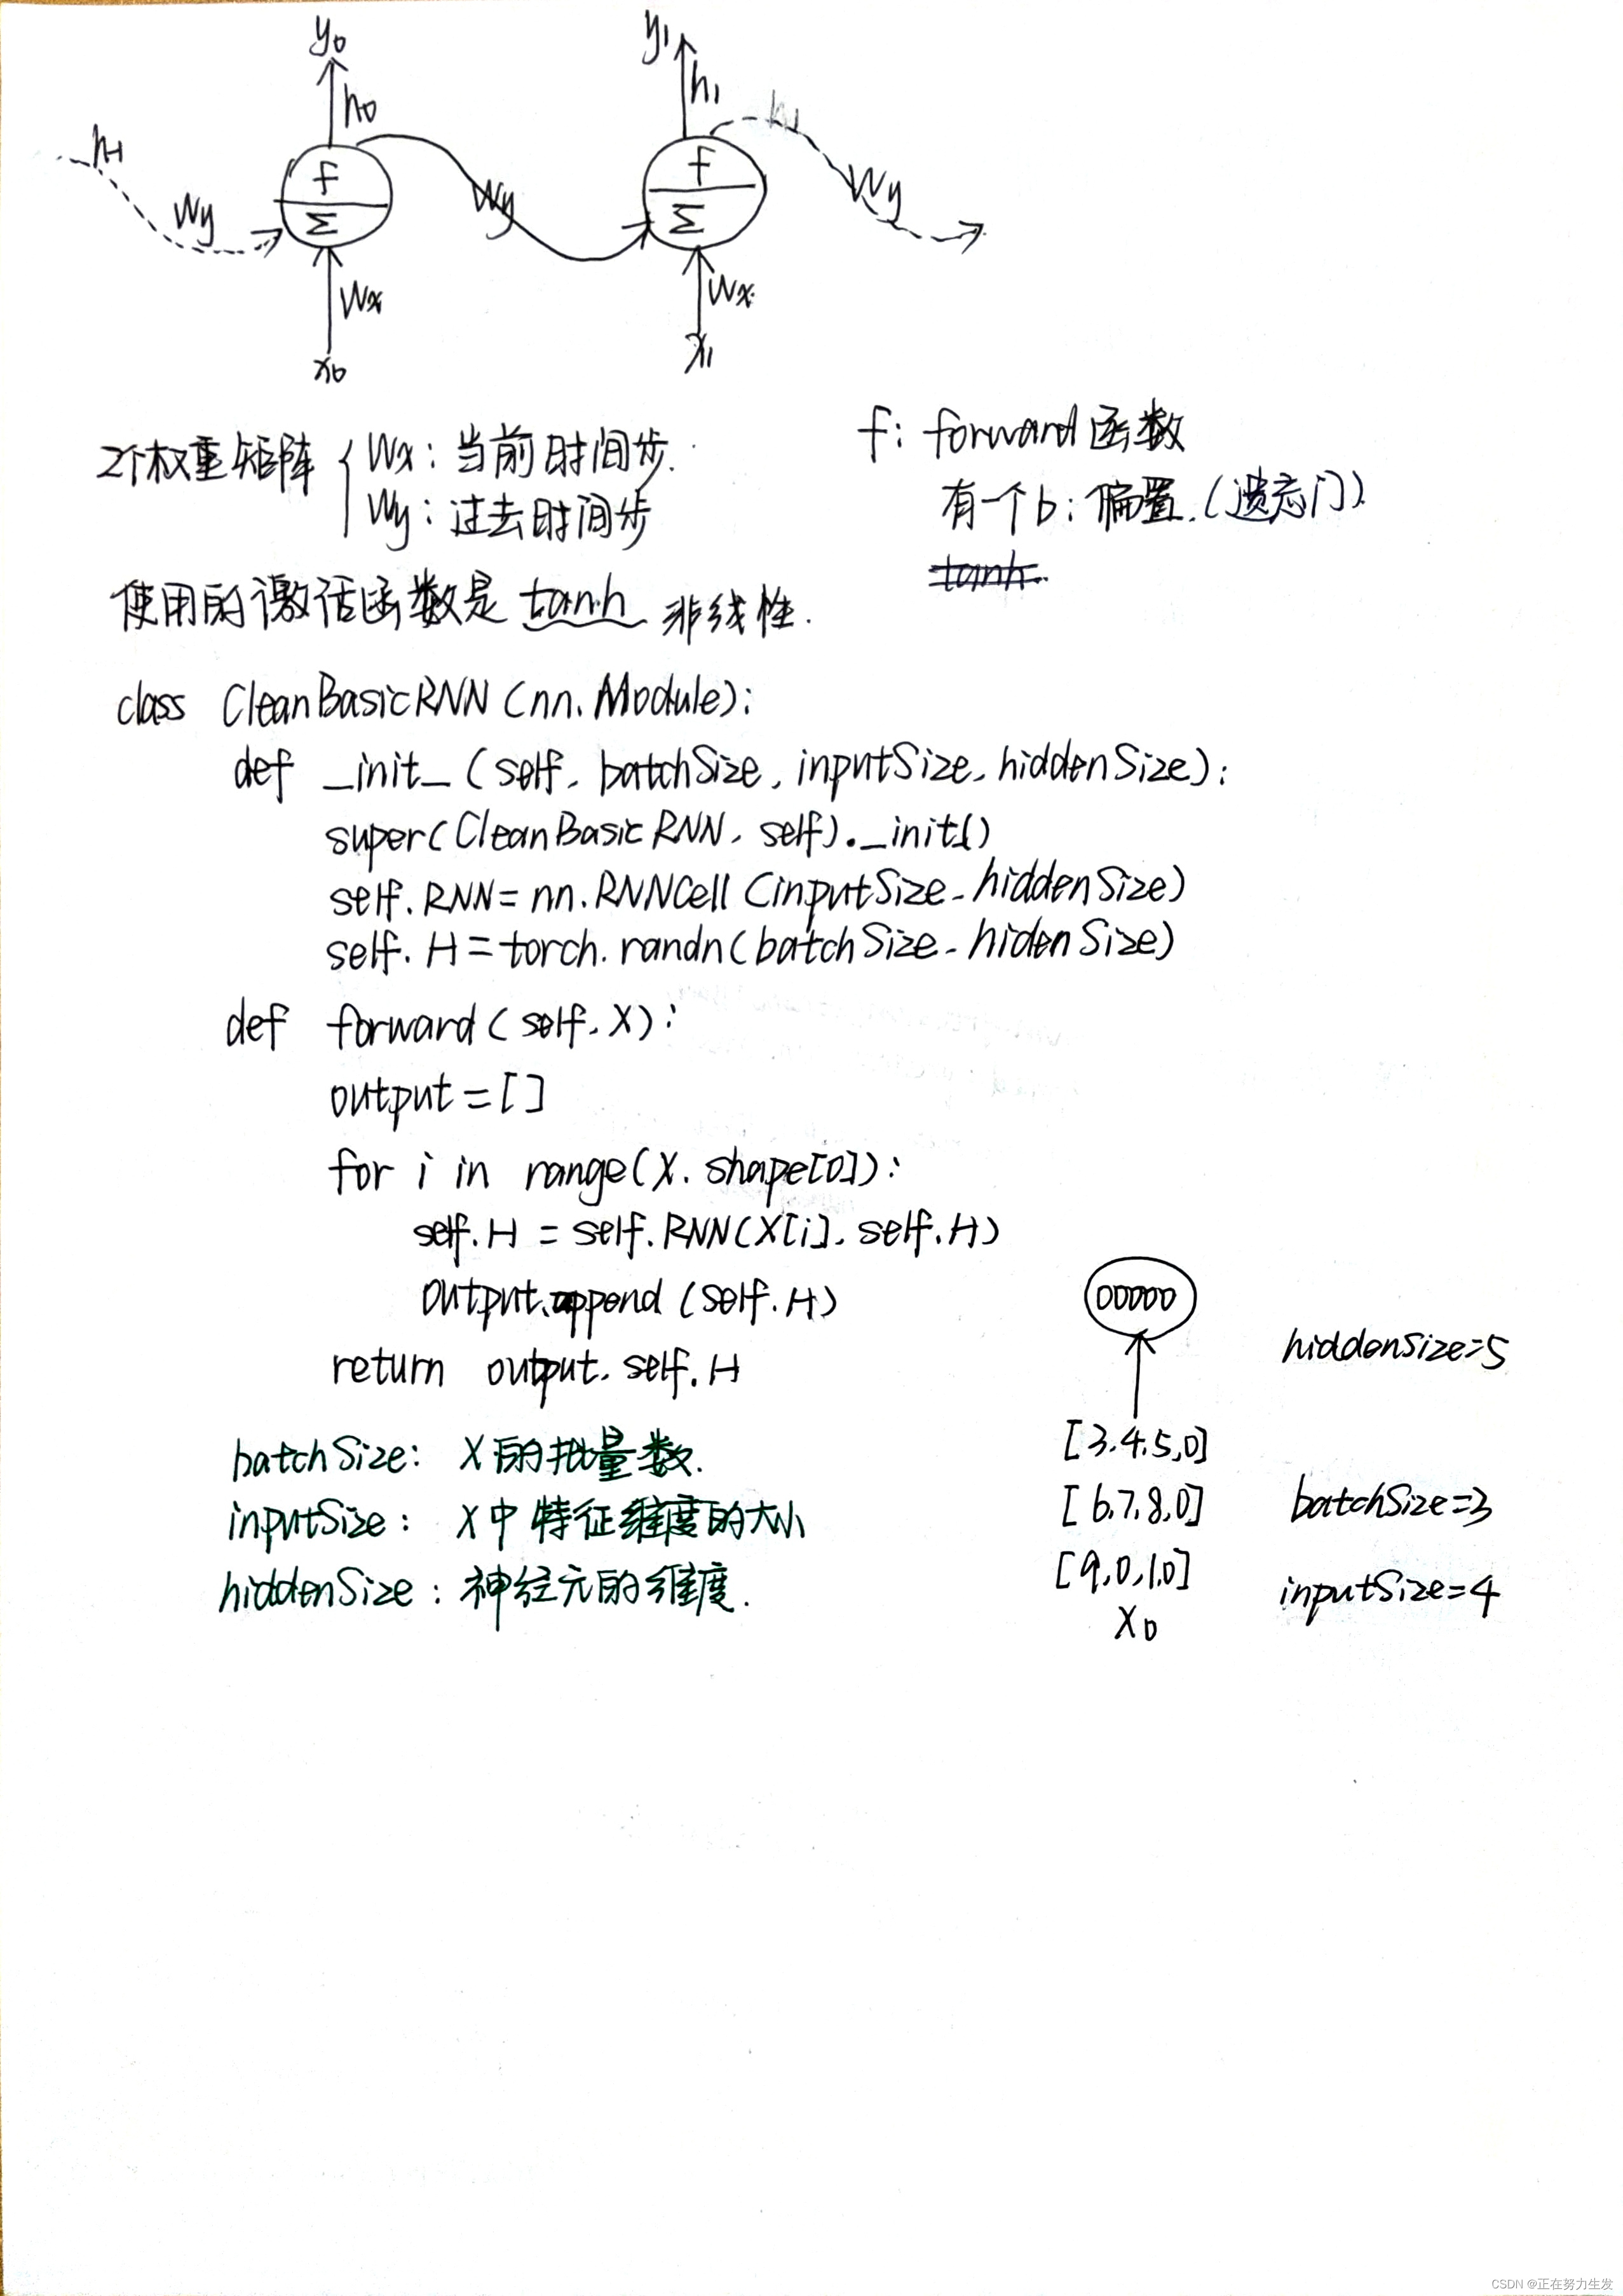 y0 y1
h0 h1
h-1 h1
f f
Wy Wy Wy
Σ Σ
Wx Wx
x0 x1
2个权重矩阵 { Wx: 当前时间步.
Wy: 过去时间步
f: forward函数
有一个b: 偏置.(遗忘门).
tanh.
使用的激活函数是 tanh 非线性.
class CleanBasicRNN (nn.Module):
def _init_ (self, batchSize, inputSize, hiddenSize):
super(CleanBasicRNN, self)._init_()
self.RNN=nn.RNNCell (inputSize, hiddenSize)
self.H=torch.randn(batchSize, hidenSize)
def forward(self, X):
output=[]
for i in range(X.shape[0]):
self.H = self.RNN(X[i], self.H)
output.append(self.H)
return output, self.H
batchSize: X的批量数.
inputSize: X中特征维度的大小
hiddenSize: 神经元的维度.
00000
hiddenSize=5
[3,4,5,0]
[6,7,8,0] batchSize=3
[9,0,1,0] inputSize=4
X0
CSDN @正在努力生发